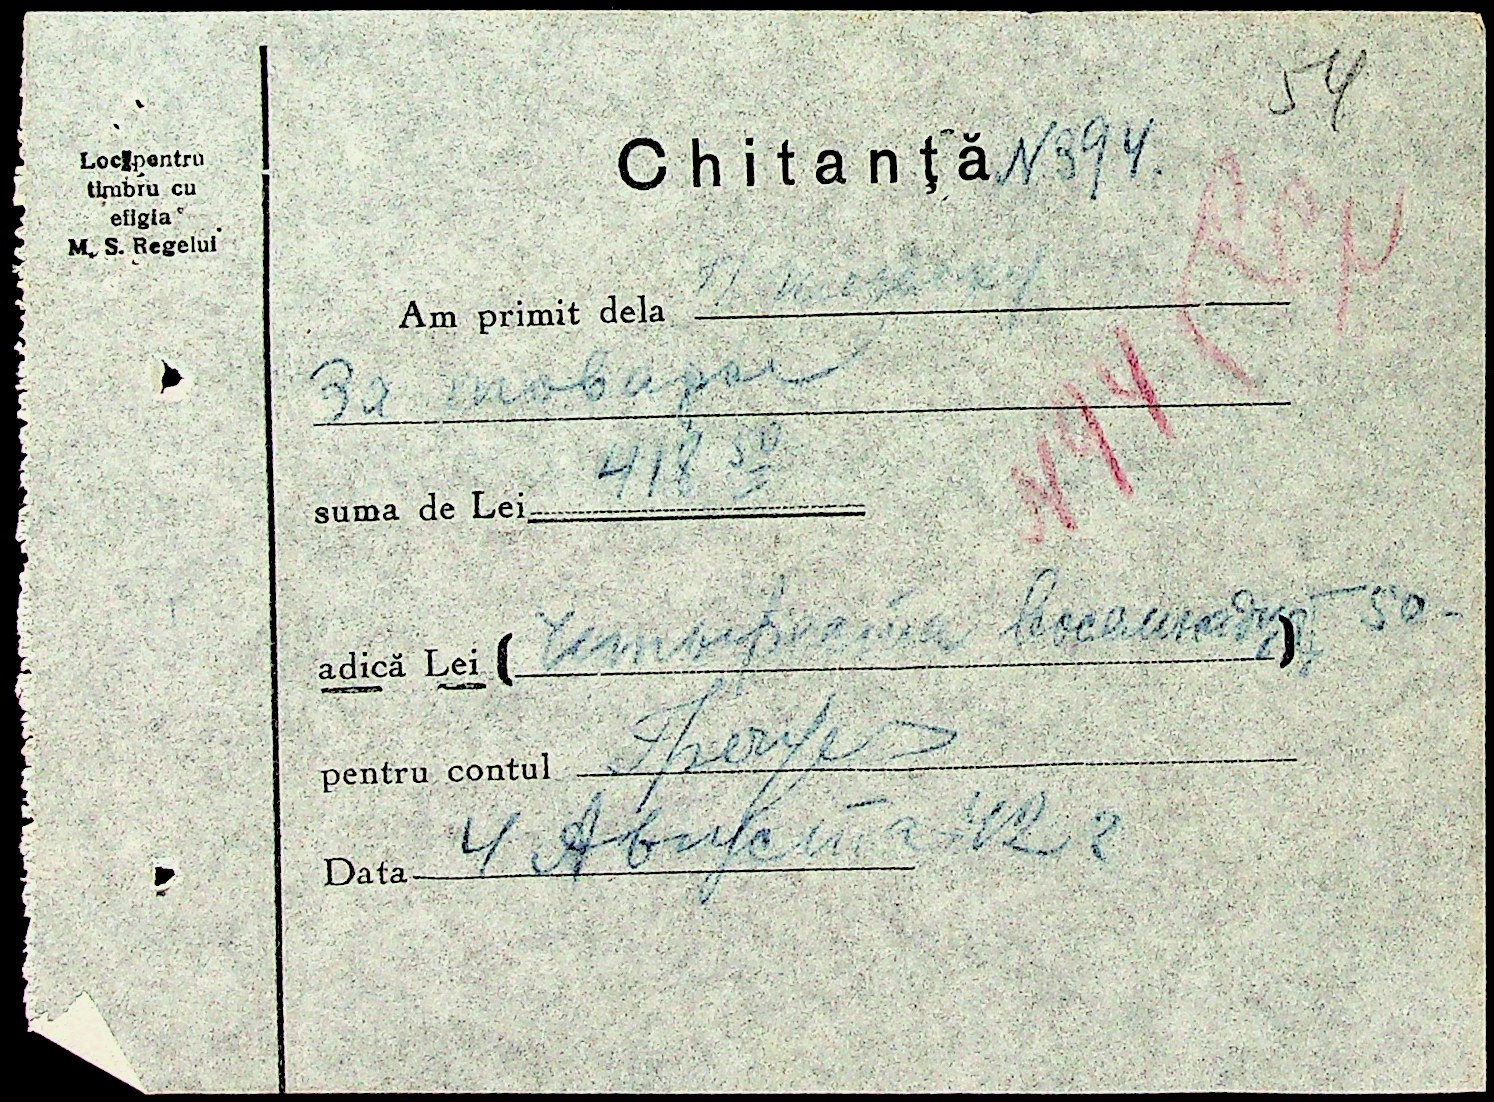 54
Loc pentru
timbru cu
efigia
M. S. Regelui
Chitanță N 394.
Am primit dela
За товары
suma de Lei 418 50
adică Lei ( Четыреста восемнадц 50 - )
pentru contul
Data 4 Августа 42 г